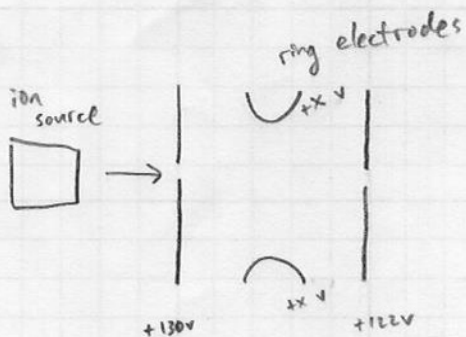 ring electrodes
ion
source
+x v
+x v
+130v
+122v